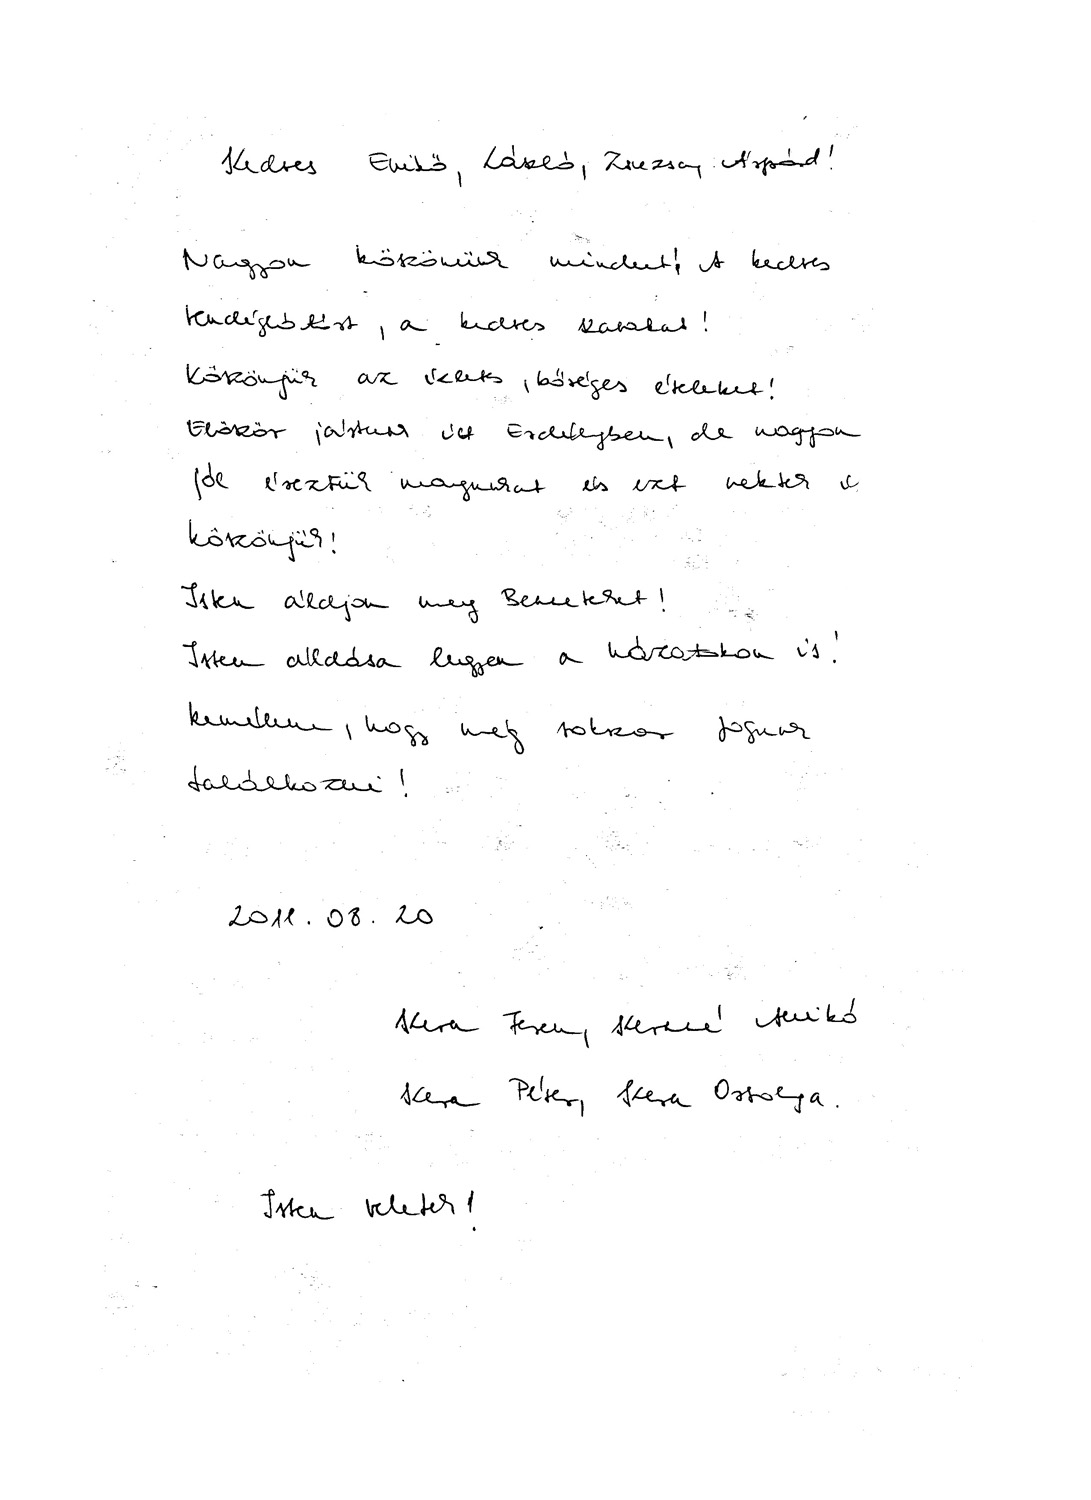 Kedves Enikő, László, Zsuzsa, Árpád!
Nagyon köszönünk mindent! A kedves
vendéglátást, a kedves szavakat!
Köszönjük az ízletes, bőséges ételeket!
Először jártunk itt Erdélyben, de nagyon
jól éreztük magunkat és ezt nektek is
köszönjük!
Isten áldjon meg Benneteket!
Isten áldása legyen a házatokon is!
Remélem, hogy még sokszor fogunk
találkozni!
2011. 08. 20
Kera Ferenc, Keráné Anikó
Kera Péter, Kera Orsolya.
Isten veletek!